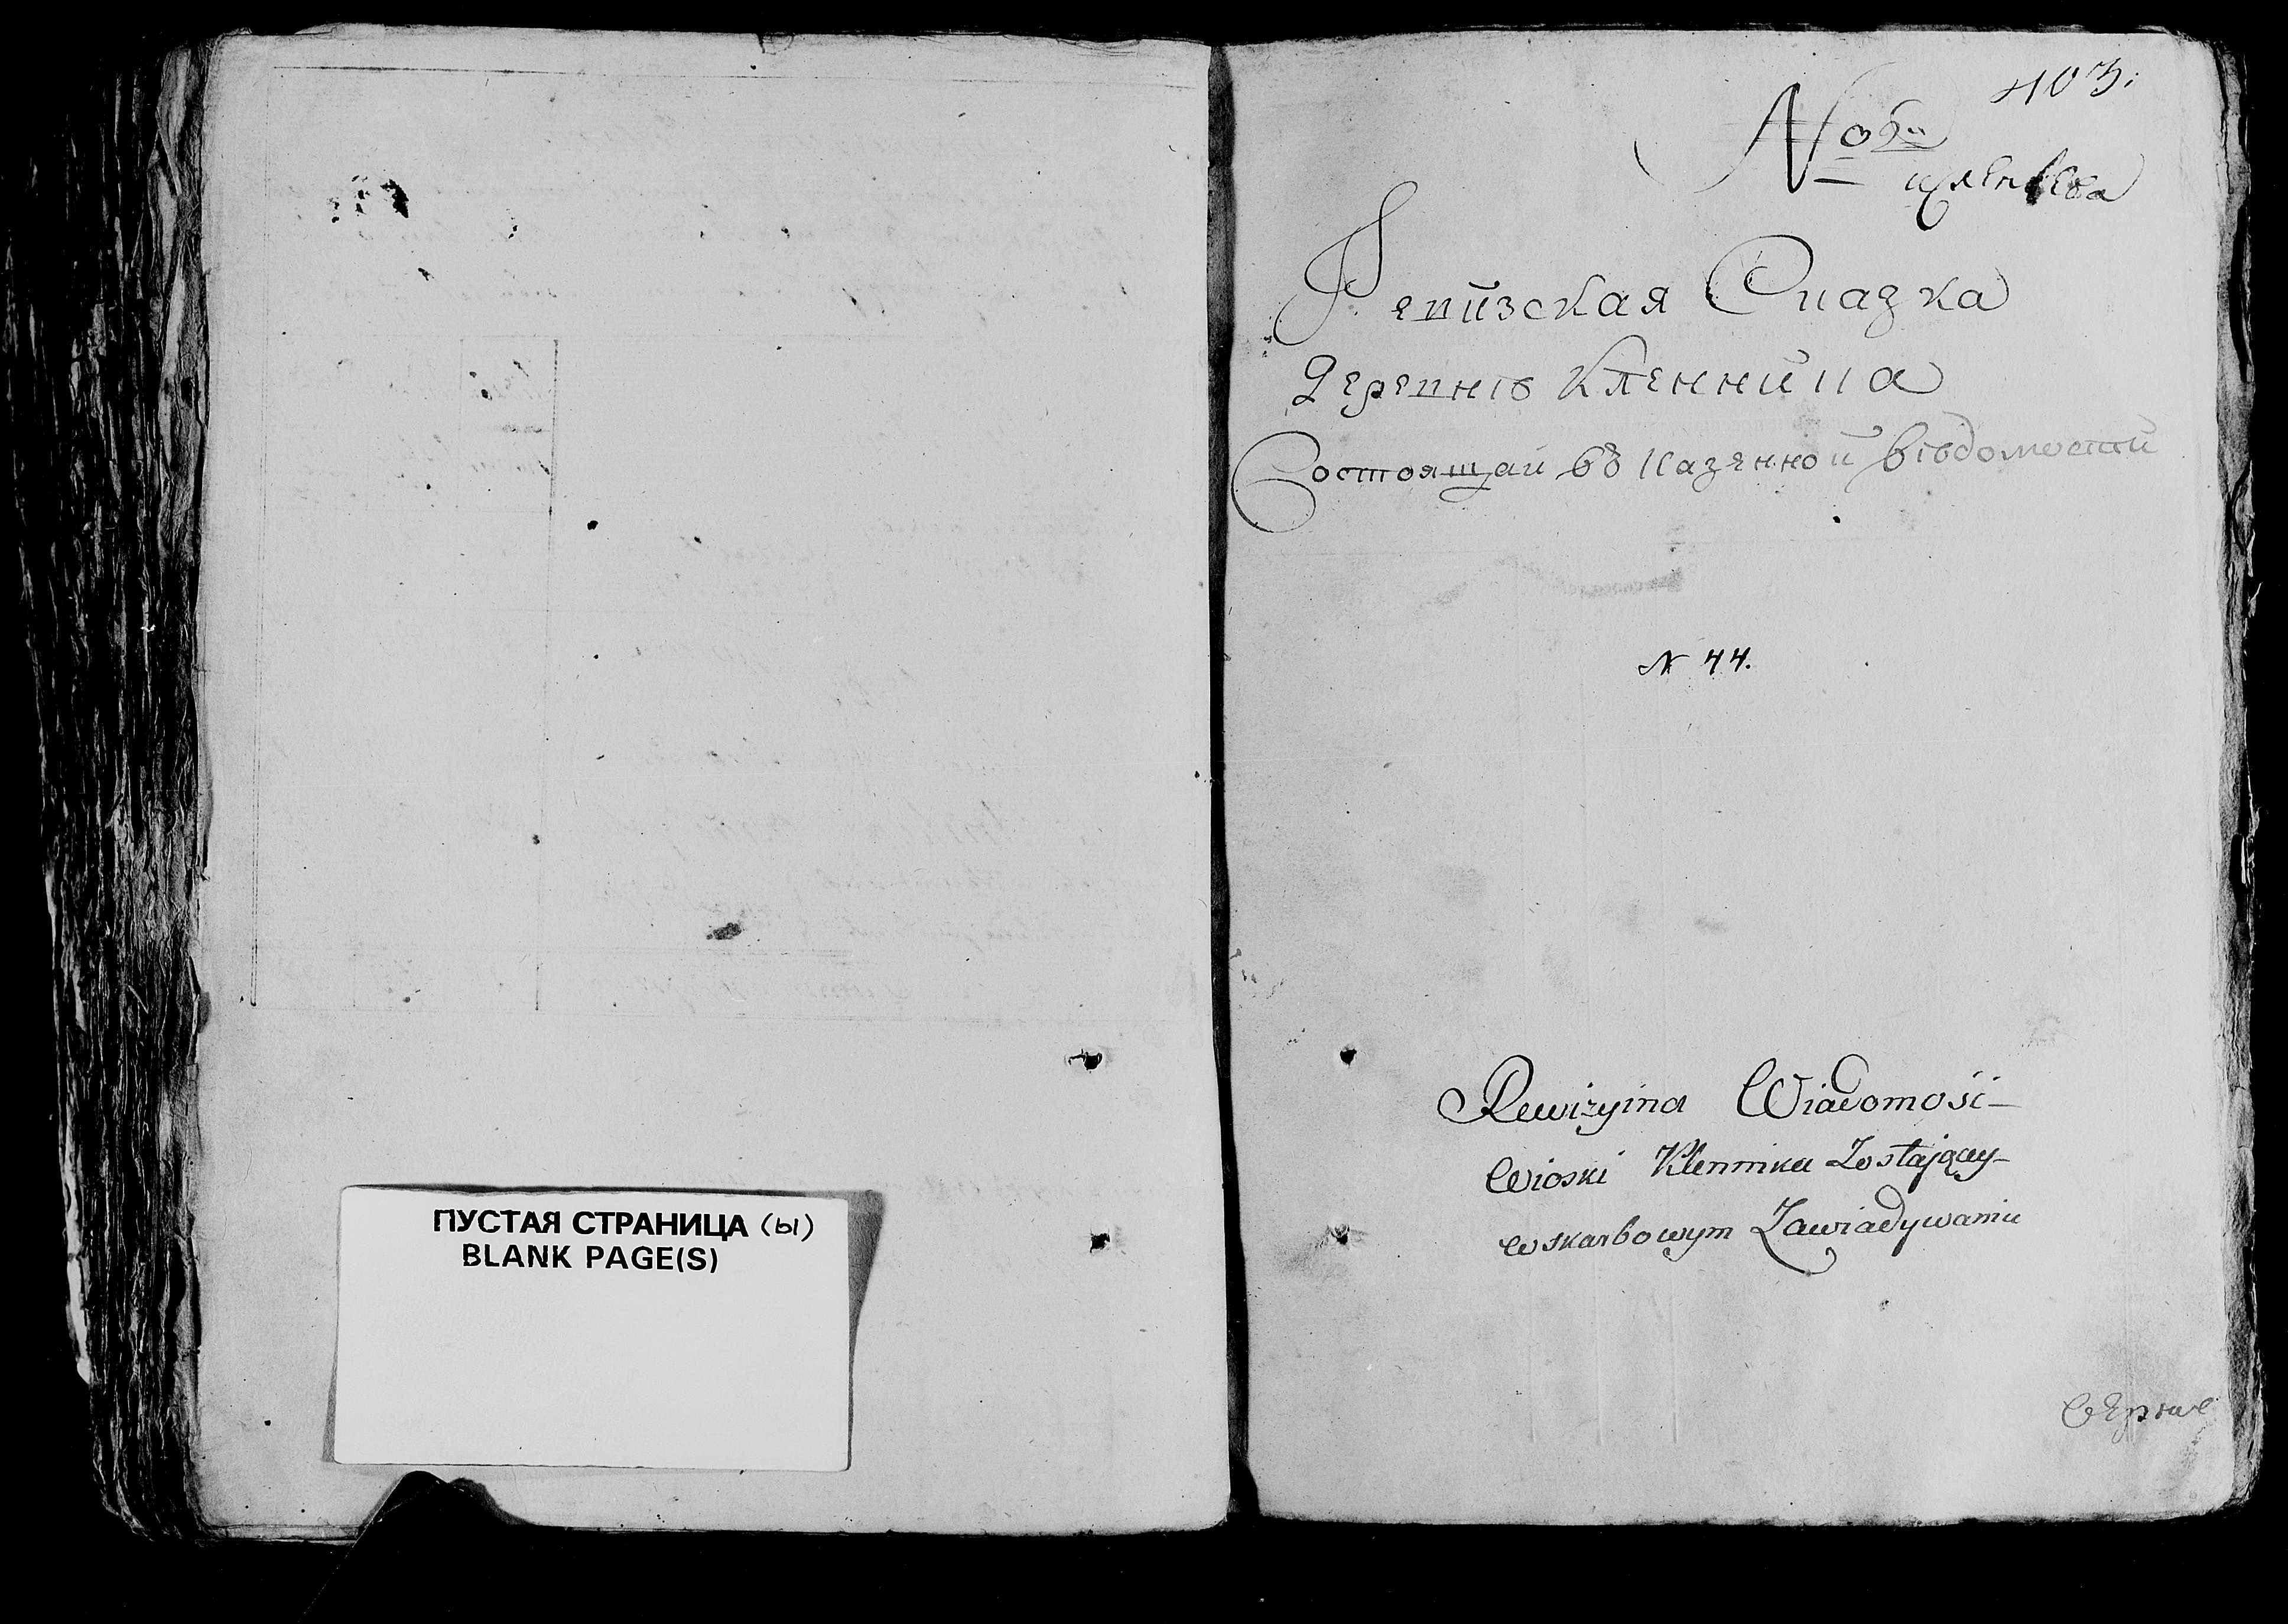 ПУСТАЯ СТРАНИЦА (ы)
BLANK PAGE(S)
403.
Ревизская Сказка
Деревнѣ Кленника
Состоящай въ Казенной вѣдомости
N 44.
Rewizyina Wiadomość
Wioski Klennika Zostającey
w skarbowym Zawiadywaniu